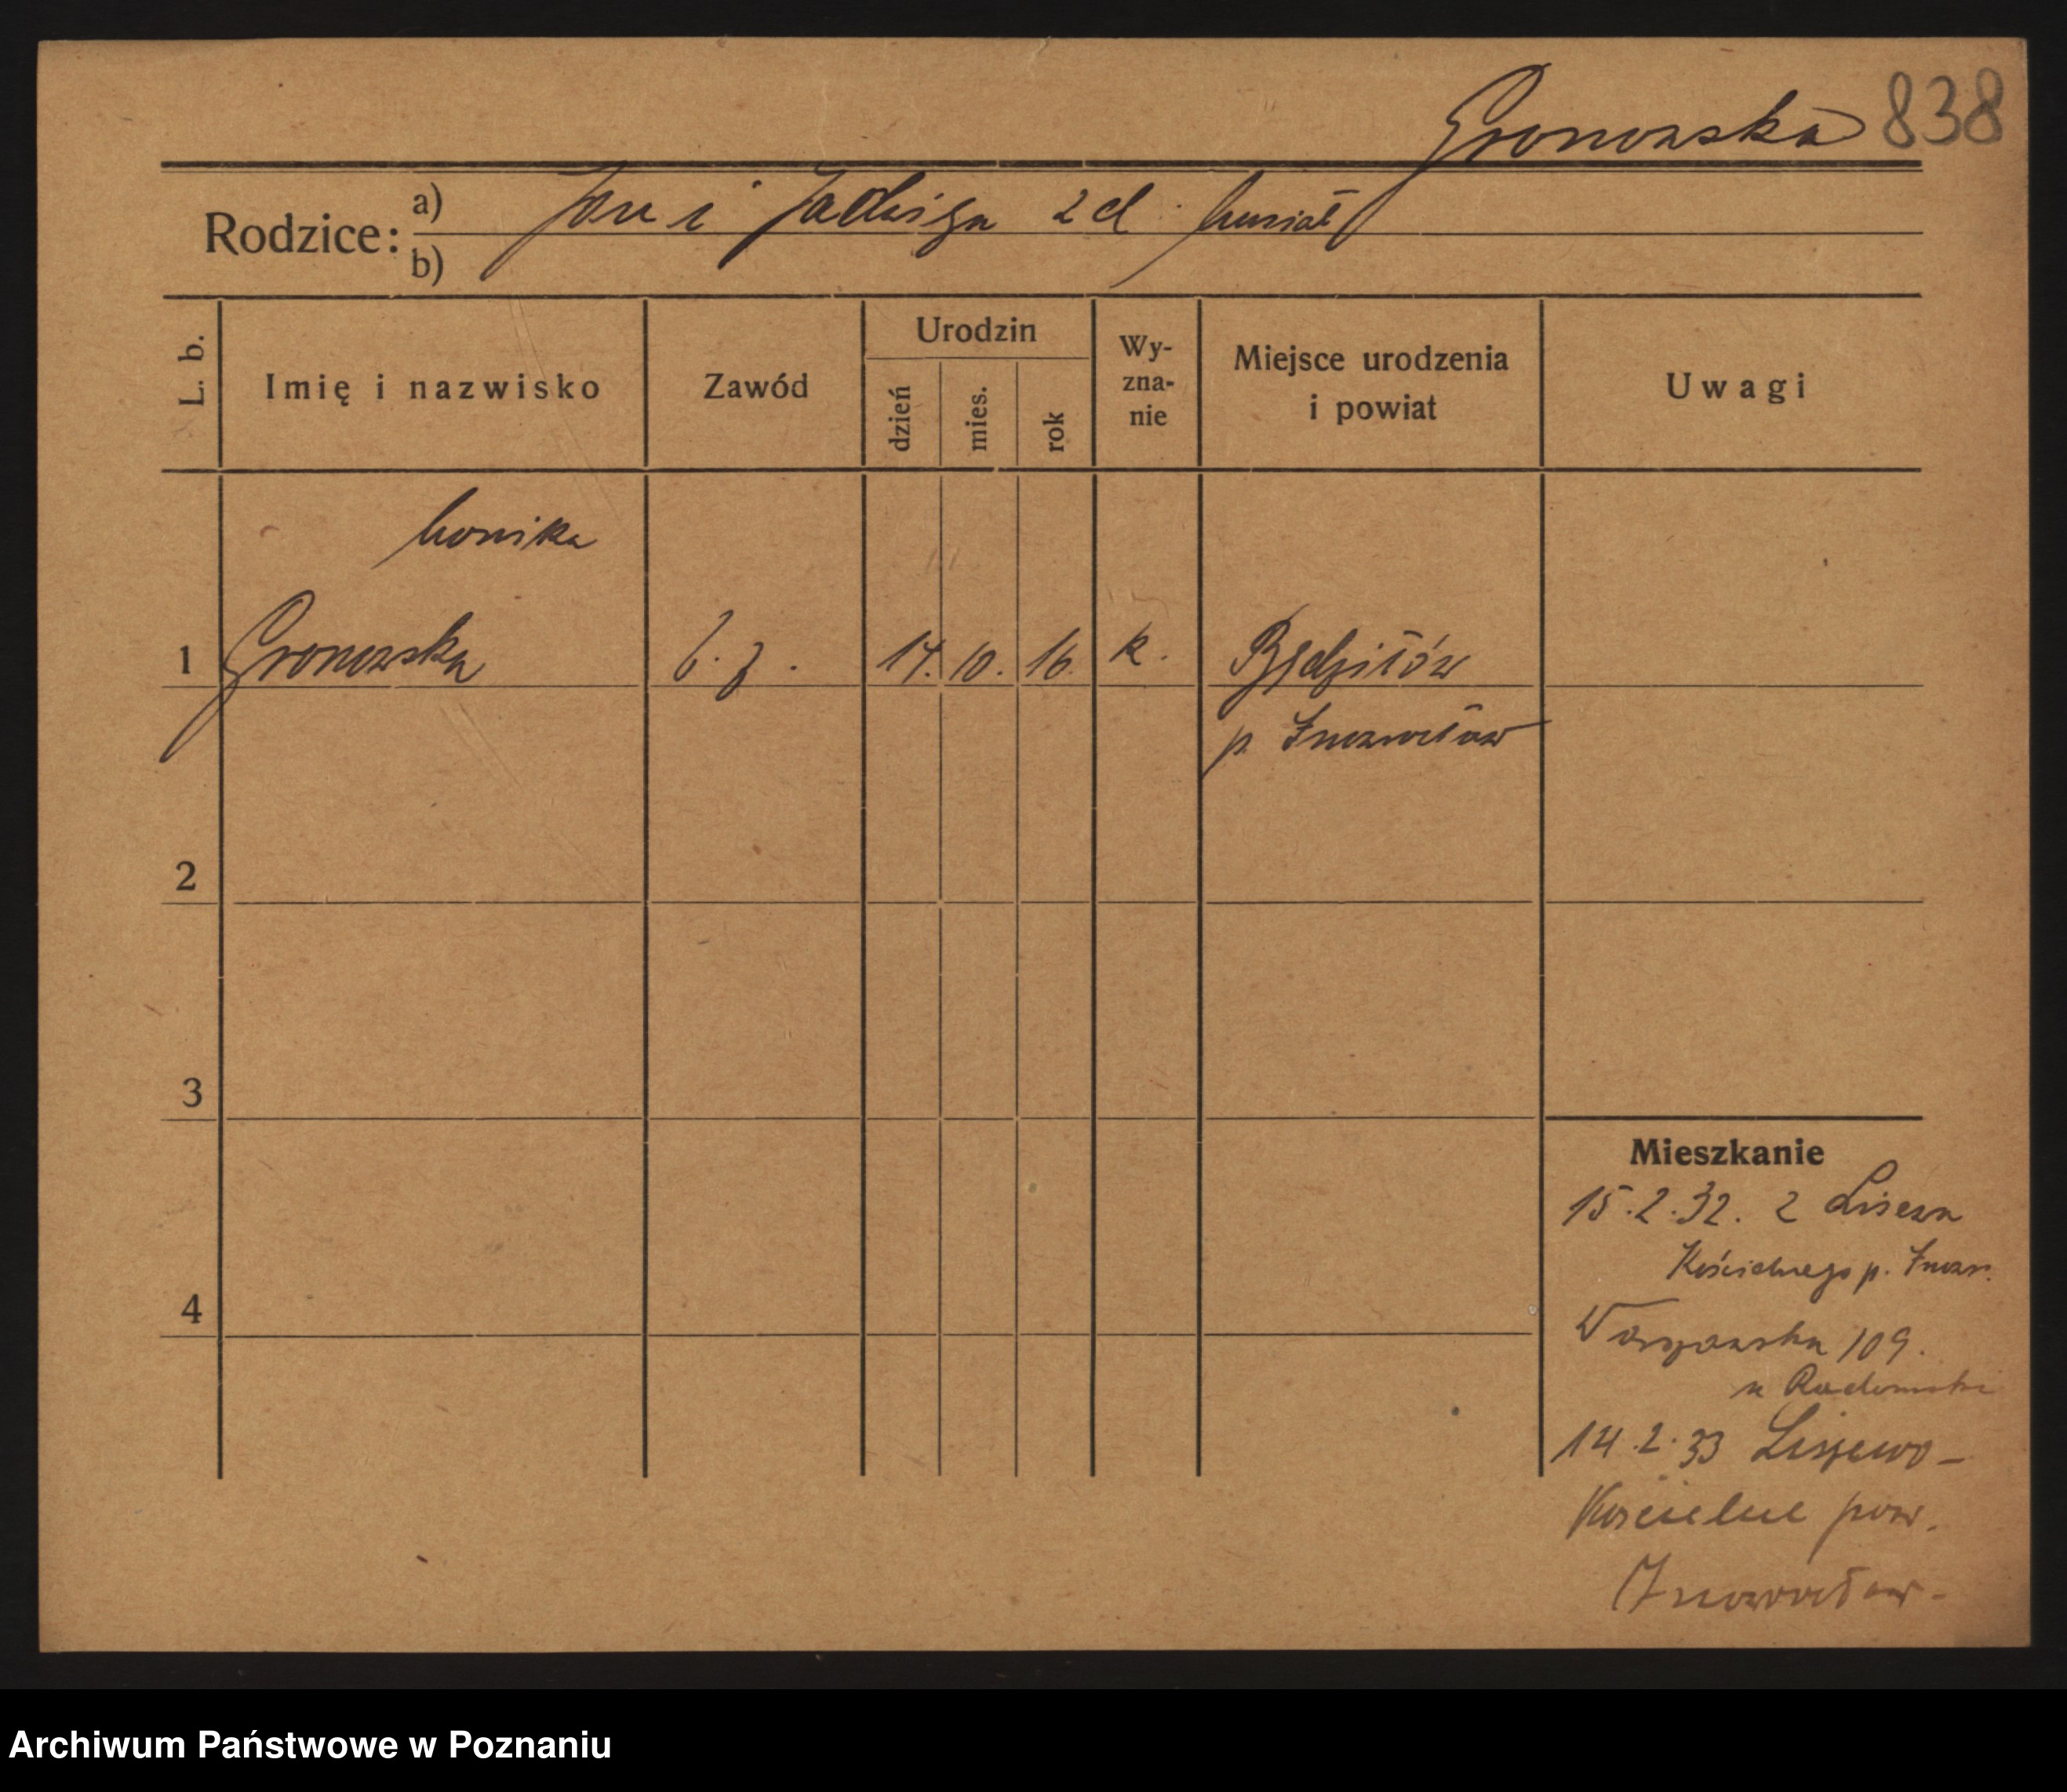 Gronowska 838
Rodzice:
a) Jan i Jadwiga z d. Musiał
b)
L. b.
Imię i nazwisko
Zawód
Urodzin
dzień
mies.
rok
Wy-
zna-
nie
Miejsce urodzenia
i powiat
Uwagi
Monika
1 Gronowska b. z. 14. 10. 16. k. Będzitów
p. Inowrocław
2
3
4
Mieszkanie
15.2.32. z Liszewa
Kościelnego p. Inowr.
Warszawska 109.
u Radomski
14.2.33 Liszewo-
Kościelne pow.
Inowrocław-
Archiwum Państwowe w Poznaniu